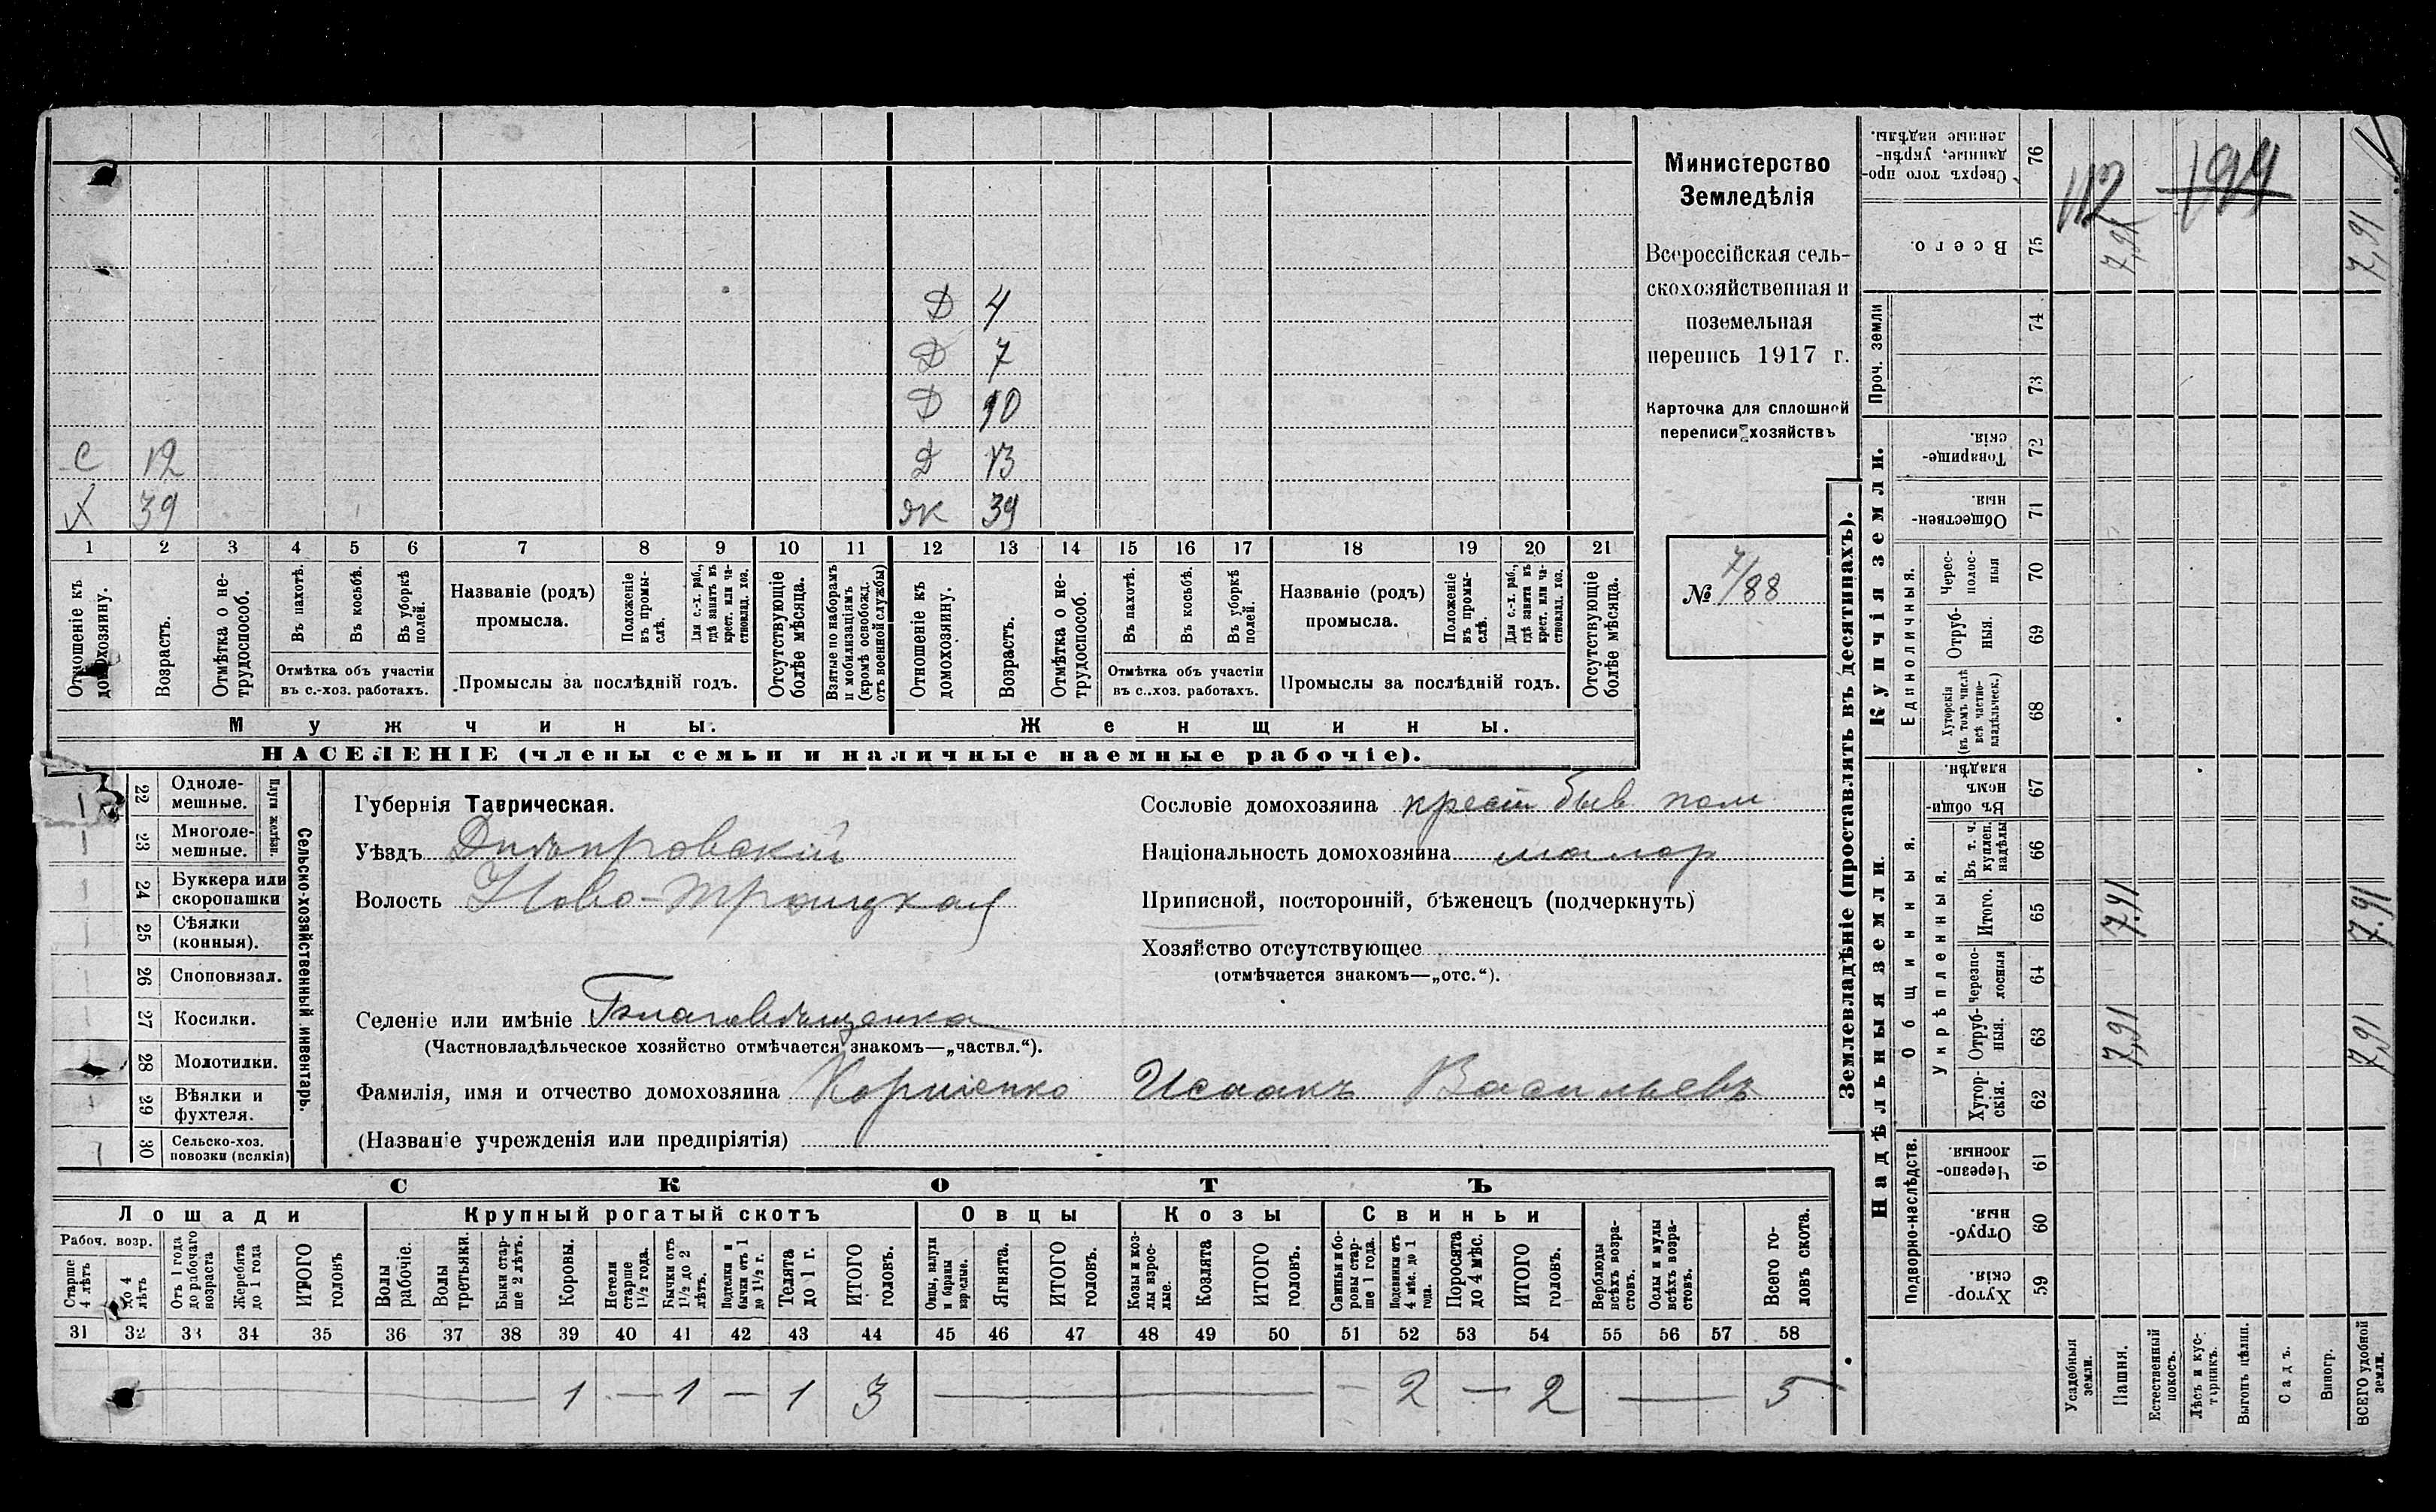 Д 4
Д 7
Д 10
С 12 Д 13
Х 39 Ж 39
1 2 3 4 5 6 7 8 9 10 11 12 13 14 15 16 17 18 19 20 21
Отношеніе къ домохозяину.
Возрастъ.
Отмѣтка о нетрудоспособ.
Въ пахотѣ.
Въ косьбѣ.
Въ уборкѣ полей.
Отмѣтка объ участіи въ с.-хоз. работахъ.
Названіе (родъ) промысла.
Положеніе въ промыслѣ.
Для с.-х. раб., гдѣ занятъ въ крест. или частновлад. хоз.
Промыслы за послѣдній годъ.
Отсутствующіе болѣе мѣсяца.
Взятые по наборамъ и мобилизаціямъ (кромѣ освобожд. отъ военной службы)
Отношеніе къ домохозяину.
Возрастъ.
Отмѣтка о нетрудоспособ.
Въ пахотѣ.
Въ косьбѣ.
Въ уборкѣ полей.
Отмѣтка объ участіи въ с.-хоз. работахъ.
Названіе (родъ) промысла.
Положеніе въ промыслѣ.
Для с.-х. раб., гдѣ занята въ крест. или частновлад. хоз.
Промыслы за послѣдній годъ.
Отсутствующіе болѣе мѣсяца.
Мужчины. Женщины.
НАСЕЛЕНІЕ (члены семьи и наличные наемные рабочіе).
Министерство
Земледѣлія
Всероссійская сель-
скохозяйственная и
поземельная
перепись 1917 г.
Карточка для сплошной
переписи хозяйствъ
№ 7/88
22 Одноле-
мешные.
23 Многоле-
мешные.
Плуги желѣзн.
24 Буккера или
скоропашки
25 Сѣялки
(конныя).
26 Сноповязал.
27 Косилки.
28 Молотилки.
29 Вѣялки и
фухтеля.
30 Сельско-хоз.
повозки (всякія)
Сельско-хозяйственный инвентарь.
Губернія Таврическая.
Уѣздъ Днѣпровскій
Волость Ново-Троицкая
Селеніе или имѣніе Благовѣщенка
(Частновладѣльческое хозяйство отмѣчается знакомъ—„частвл.“).
Фамилія, имя и отчество домохозяина Корніенко Исаакъ Васильевъ
(Названіе учрежденія или предпріятія)
Сословіе домохозяина крест быв пом
Національность домохозяина малор
Приписной, посторонній, бѣженецъ (подчеркнуть)
Хозяйство отсутствующее
(отмѣчается знакомъ—„отс.“).
СКОТЪ
Лошади Крупный рогатый скотъ Овцы Козы Свиньи
Рабоч. возр.
Старше 4 лѣтъ
до 4 лѣтъ
Отъ 1 года до рабочаго возраста
Жеребята до 1 года
ИТОГО головъ
Волы рабочіе.
Волы третьяки.
Быки старше 2 лѣтъ.
Коровы.
Нетели старше 1½ года.
Бычки отъ 1½ до 2 лѣтъ.
Подтелки и бычки отъ 1 до 1½ г.
Телята до 1 г.
ИТОГО головъ.
Овцы, валухи и бараны взрослые.
Ягнята.
ИТОГО головъ.
Козы и козлы взрослые.
Козлята
ИТОГО головъ.
Свиньи и боровы старше 1 года.
Подсвинки отъ 4 мѣс. до 1 года.
Поросята до 4 мѣс.
ИТОГО головъ.
Верблюды всѣхъ возрастовъ.
Ослы и мулы всѣхъ возрастовъ.
Всего головъ скота.
31 32 33 34 35 36 37 38 39 40 41 42 43 44 45 46 47 48 49 50 51 52 53 54 55 56 57 58
1 — 1 — 1 3 — — 2 — 2 — 5
Землевладѣніе (проставлять въ десятинахъ).
Надѣльныя земли. Купчія земли. Проч. земли
Подворно-наслѣдств.
Общинныя.
Укрѣпленныя.
Единоличныя.
59 Хуторскія.
60 Отрубныя.
61 Черезполосныя.
62 Хуторскія.
63 Отрубныя. 7,91 7,91
64 Черезполосныя
65 Итого. 7.91 7.91
66 Въ т. ч. куплен. надѣлы
67 Въ общинномъ владѣн.
68 Хуторскія (въ томъ числѣ всѣ частновладѣльческ.)
69 Отрубныя.
70 Череcполосныя
71 Общественныя.
72 Товарищескія.
73
74
75 Всего. 7,91 7,91
76 Сверхъ того проданные, укрѣпленные надѣлы.
112 194
Усадебныя земли.
Пашня.
Естественный покосъ.
Лѣсъ и кустарникъ.
Выгонъ цѣлин.
Садъ.
Виногр.
ВСЕГО удобной земли.